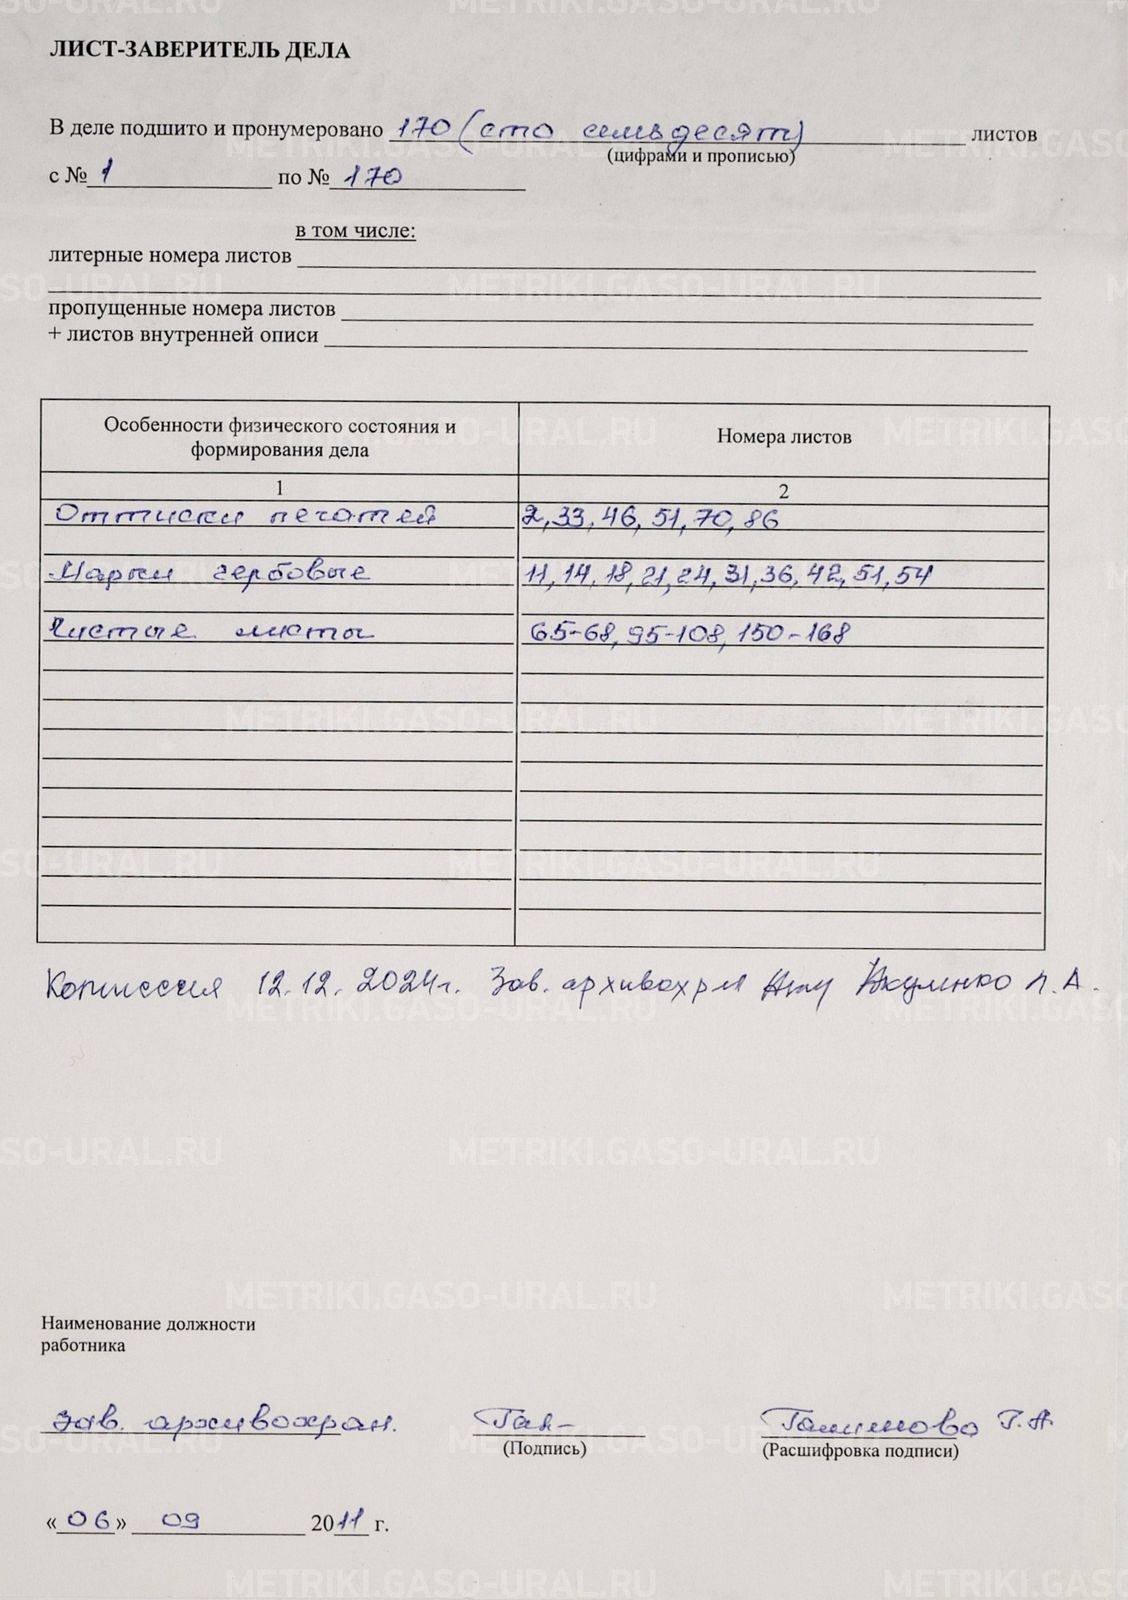 ЛИСТ-ЗАВЕРИТЕЛЬ ДЕЛА
В деле подшито и пронумеровано 170 (сто семьдесят) листов
(цифрами и прописью)
с № 1 по № 170
в том числе:
литерные номера листов
пропущенные номера листов
+ листов внутренней описи
Особенности физического состояния и формирования дела
Номера листов
1 2
Оттиски печатей 2, 33, 46, 51, 70, 86
Марки гербовые 11, 14, 18, 21, 24, 31, 36, 42, 51, 54
Чистые листы 65-68, 95-108, 150-168
Комиссия 12.12.2024г. Зав. архивохр Л.А.
Наименование должности
работника
Зав. архивохран. Гал- Р.А.
(Подпись) (Расшифровка подписи)
«06» 09 2011 г.
METRIKI.GASO-URAL.RU